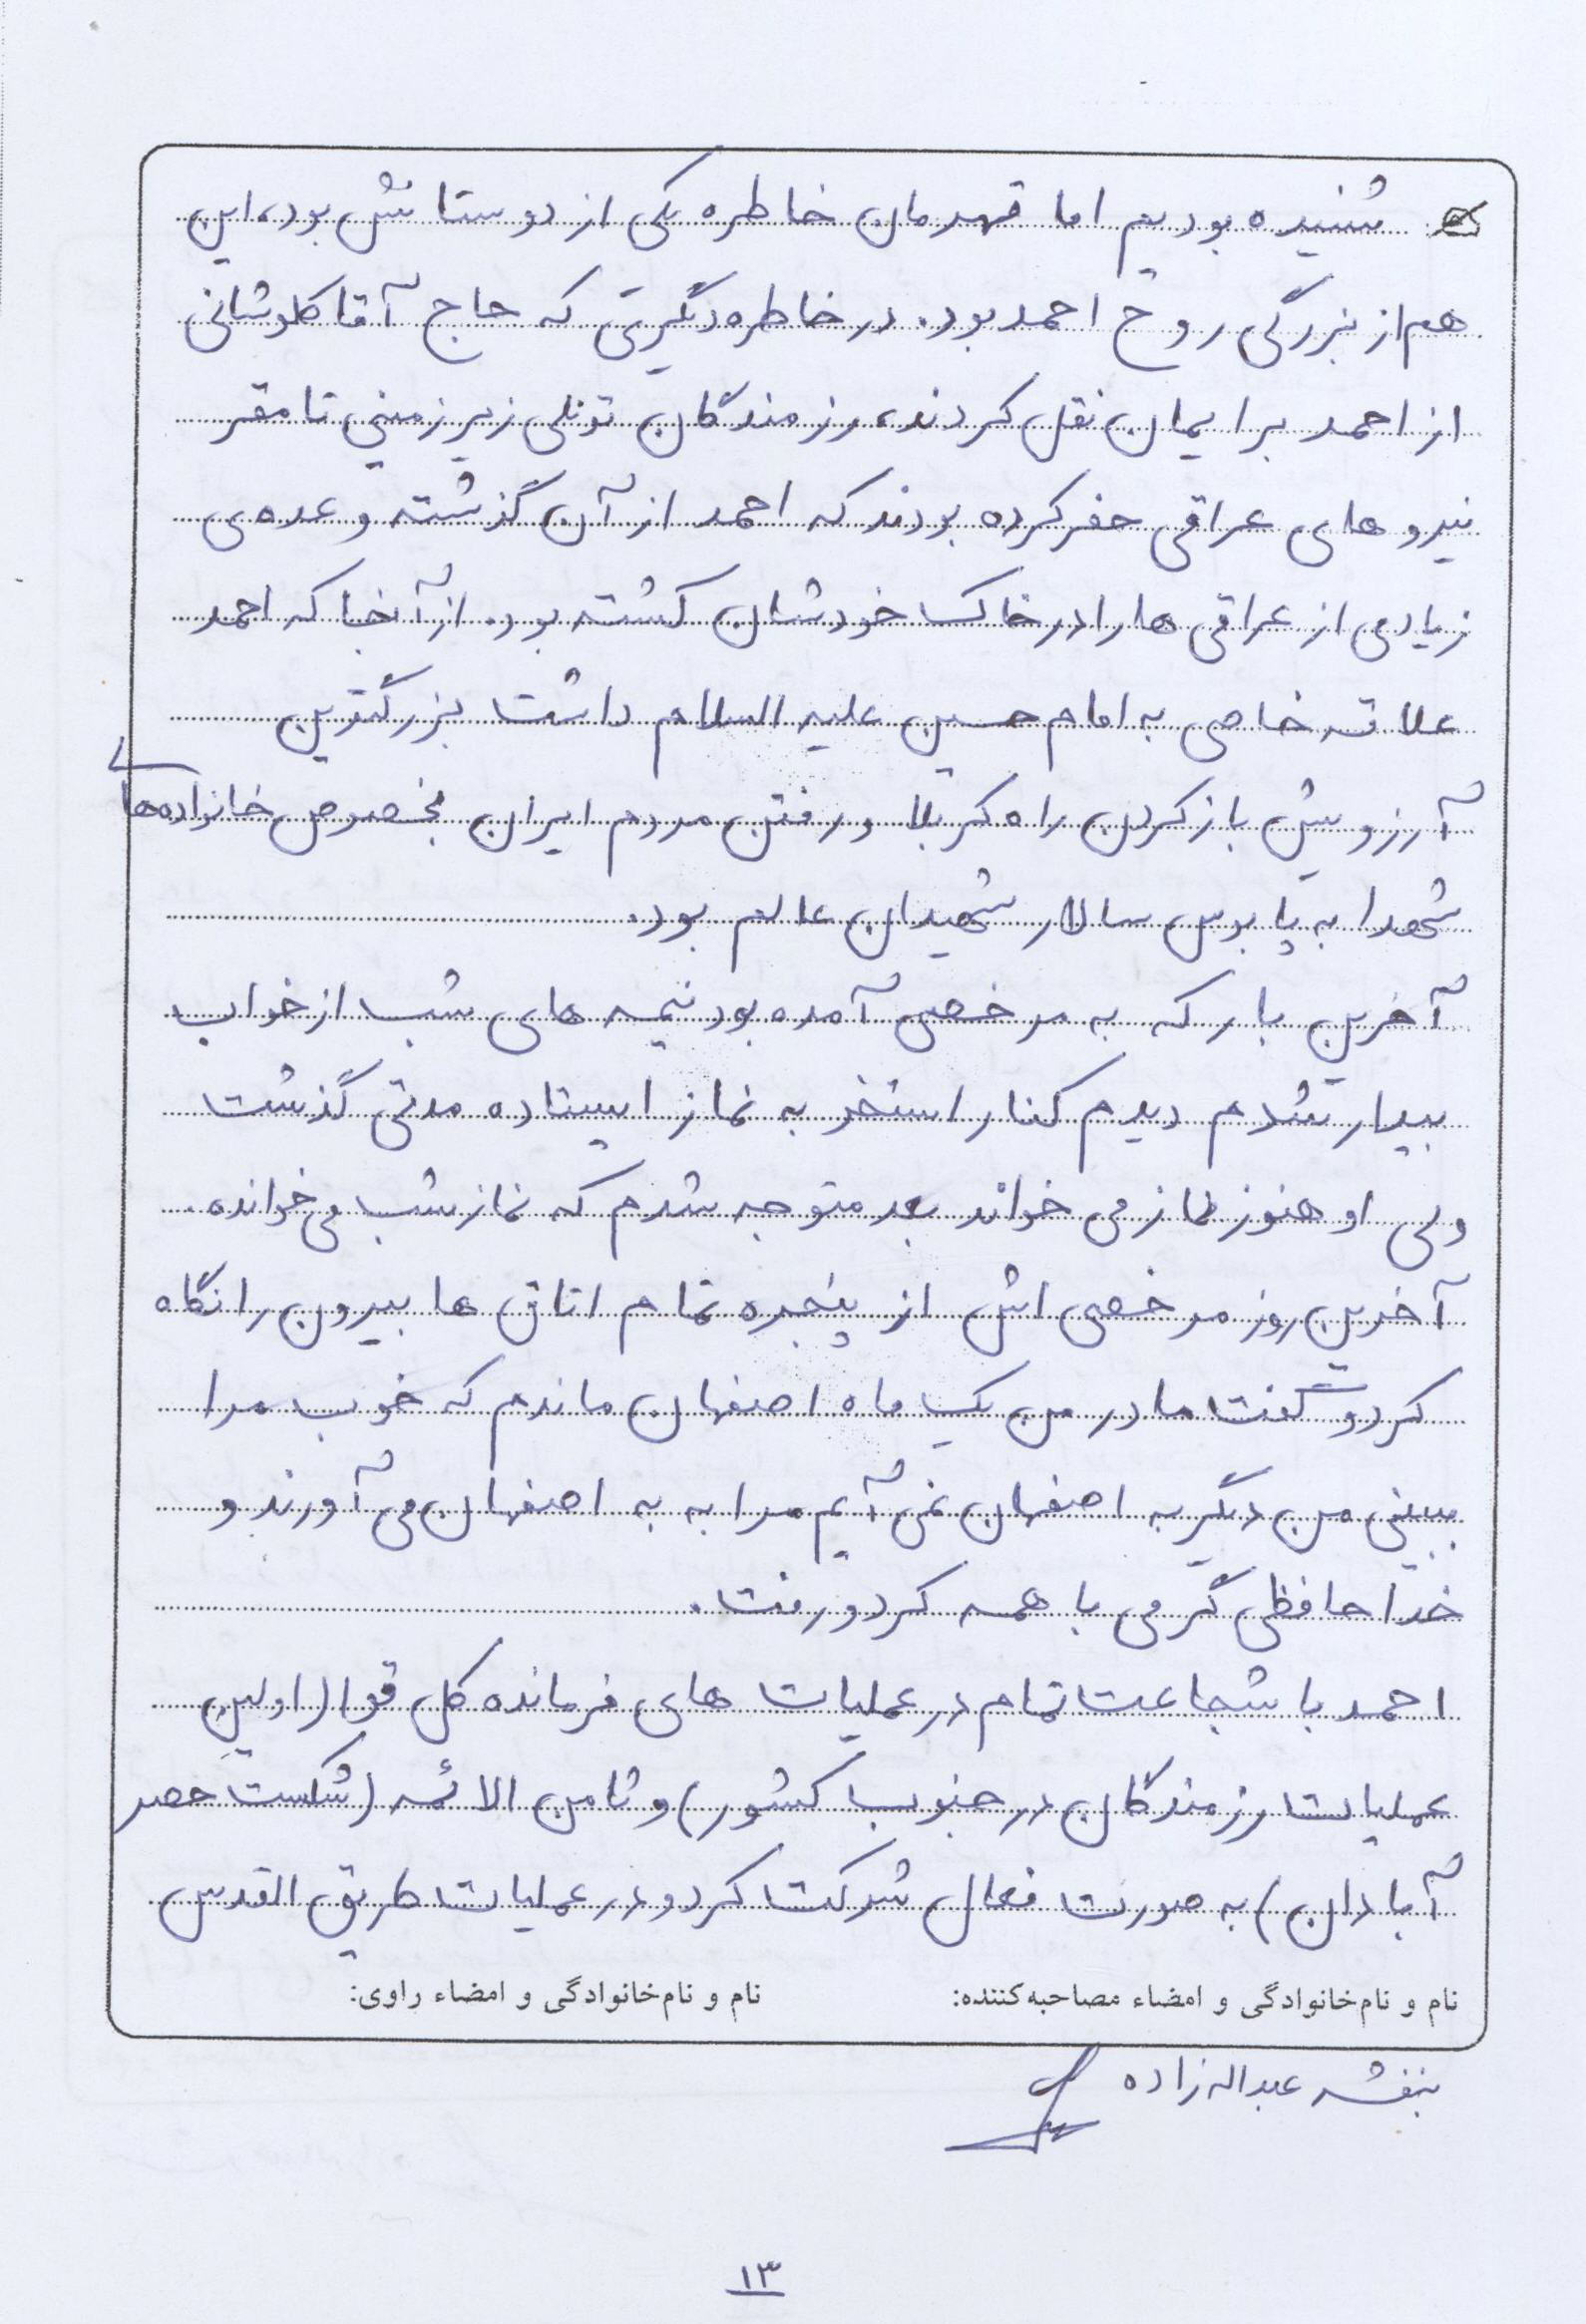 شنیده بودیم اما قهرمان خاطره یکی از دوستانش بود، این
هم از بزرگی روح احمد بود. در خاطره دیگری که حاج آقا کلوشانی
از احمد برایمان نقل کردند، رزمندگان تونلی زیرزمینی تا مقر
نیروهای عراقی حفر کرده بودند که احمد از آن گذشته و عده‌ی
زیادی از عراقی ها را در خاک خودشان کشته بود. از آنجا که احمد
علاقه خاصی به امام حسین علیه السلام داشت بزرگترین
آرزویش باز کردن راه کربلا و رفتن مردم ایران بخصوص خانواده‌های
شهدا به پابوس سالار شهیدان عالم بود.
آخرین بار که به مرخصی آمده بود نیمه های شب از خواب
بیدار شدم دیدم کنار استخر به نماز ایستاده مدتی گذشت
ولی او هنوز نماز می خواند بعد متوجه شدم که نماز شب می‌خوانده.
آخرین روز مرخصی اش از پنجره تمام اتاق ها بیرون را نگاه
کرد و گفت مادر من یک ماه اصفهان ماندم که خوب مرا
ببینی من دیگر به اصفهان نمی آیم مرا به به اصفهان می آورند و
خداحافظی گرمی با همه کرد و رفت.
احمد با شجاعت تمام در عملیات های فرمانده کل قوا (اولین
عملیات رزمندگان در جنوب کشور) و ثامن الائمه (شکست حصر
آبادان) به صورت فعال شرکت کرد و در عملیات طریق القدس
نام و نام‌خانوادگی و امضاء مصاحبه‌کننده: نام و نام‌خانوادگی و امضاء راوی:
بنفشه عبداله زاده
۱۳